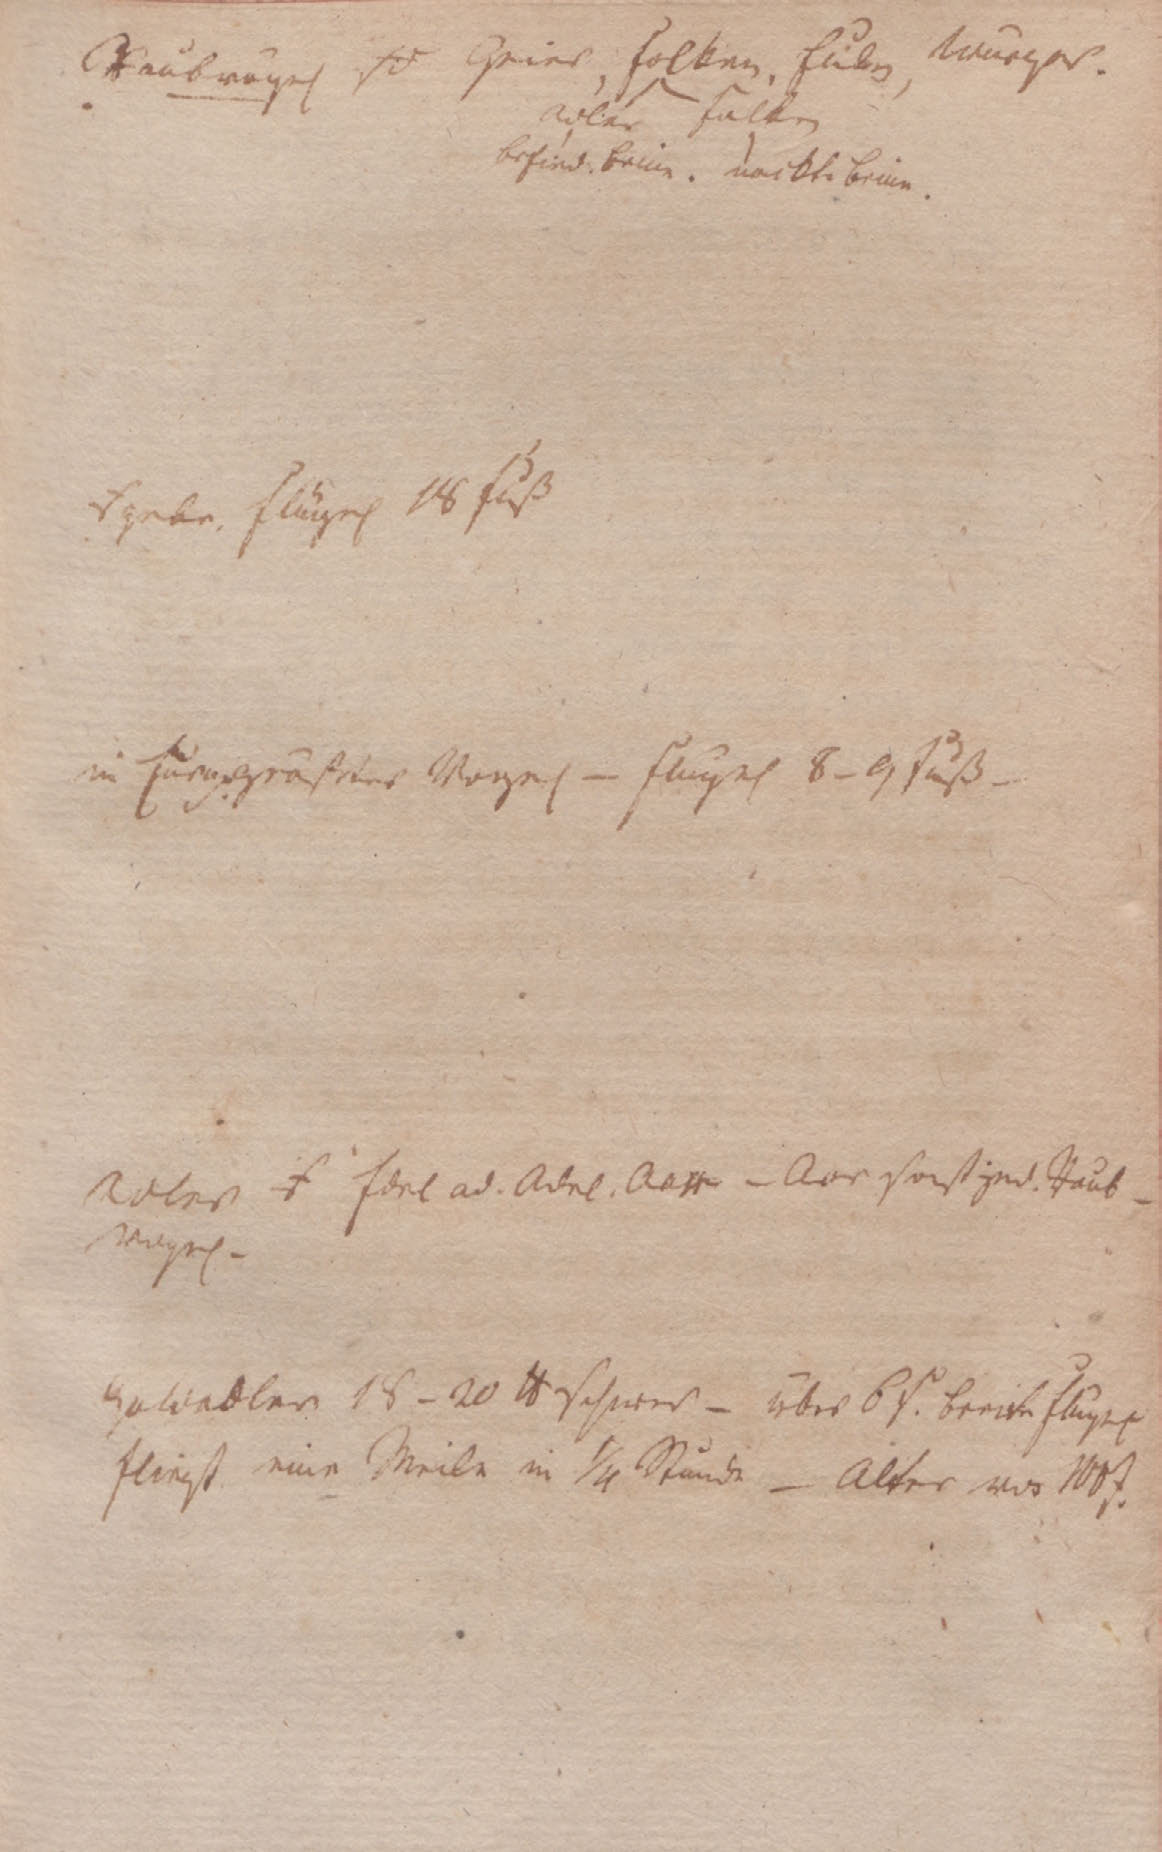 Raubvögel sd Geier, Falken, Eulen, Wuerger.
Adler Falken
befied. Beine. nackte Beine.
Flügel 18 Fuß
in Europ. größter Vogel — Flügel 8–9 Fuß —
Adler Edel ad. Adel. Aar — Aar sonst jed. Raub-
vogel —
Goldadler 18–20 ℔ schwer — über 6 F. breite Flügel
fliegt eine Meile in 1/4 Stunde — Alter von 100 J.